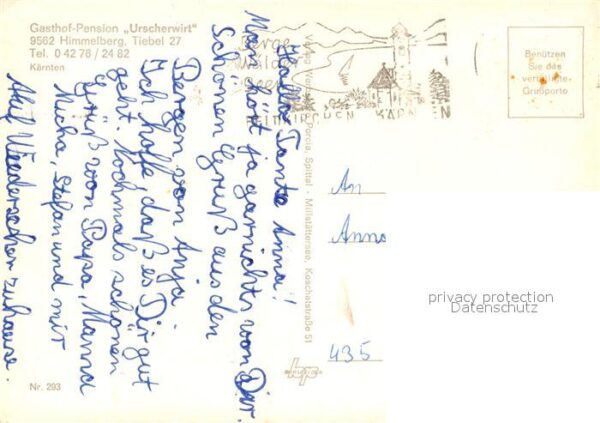 Gasthof-Pension „Urscherwirt"
9562 Himmelberg, Tiebel 27
Tel. 0 42 76 / 24 82
Kärnten
Berge
Wälder
Seen
FELDKIRCHEN KÄRNTEN
Benützen
Sie das
verbilligte
Grußporto
Hallo Tante Anna!
Man hört ja garnichts von Dir.
Schönen Gruß aus den
Bergen von Anja.
Ich hoffe, daß es Dir gut
geht. Nochmals schönen
Gruß von Papa, Mama
Micha, Stefan und mir
Auf Wiedersehen zuhause.
Spittal - Millstättersee, Koschatstraße 51
An
Anna
435
privacy protection
Datenschutz
Nr. 293